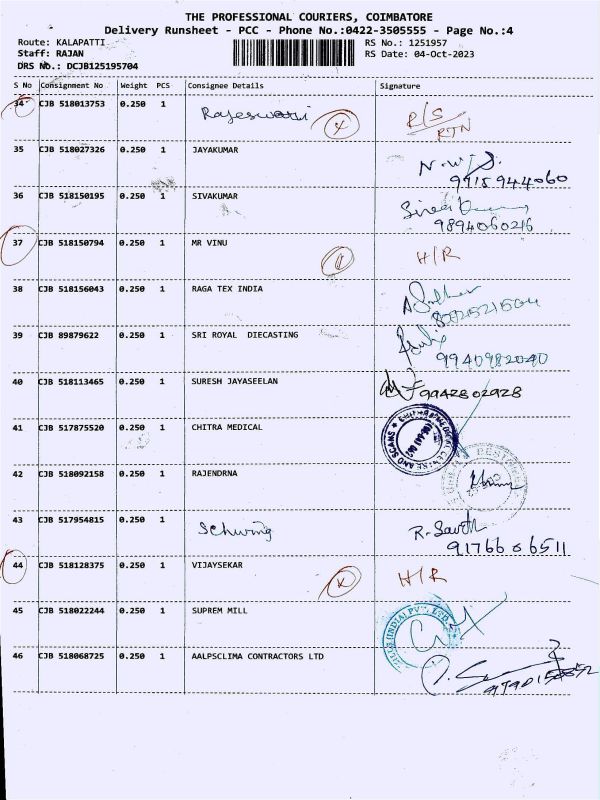 THE PROFESSIONAL COURIERS, COIMBATORE
Delivery Runsheet - PCC - Phone No.:0422-3505555 - Page No.:4
Route: KALAPATTI
Staff: RAJAN
DRS No.: DCJB125195704
RS No.: 1251957
RS Date: 04-Oct-2023
S No Consignment No Weight PCS Consignee Details Signature
34 CJB 518013753 0.250 1 Rajeswari R/S RTN
35 CJB 518027326 0.250 1 JAYAKUMAR 9915944060
36 CJB 518150195 0.250 1 SIVAKUMAR 9894060216
37 CJB 518150794 0.250 1 MR VINU H/R
38 CJB 518156043 0.250 1 RAGA TEX INDIA
39 CJB 89879622 0.250 1 SRI ROYAL DIECASTING 9940982040
40 CJB 518113465 0.250 1 SURESH JAYASEELAN 9942802928
41 CJB 517875520 0.250 1 CHITRA MEDICAL
42 CJB 518092158 0.250 1 RAJENDRNA
43 CJB 517954815 0.250 1 Schwing R. Savth 9176606511
44 CJB 518128375 0.250 1 VIJAYSEKAR H/R
45 CJB 518022244 0.250 1 SUPREM MILL (INDIA) PVT. LTD.
46 CJB 518068725 0.250 1 AALPSCLIMA CONTRACTORS LTD